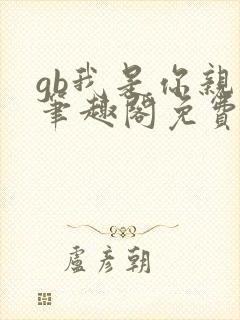 gb我是你親
筆趣閣免費
盧彥朝